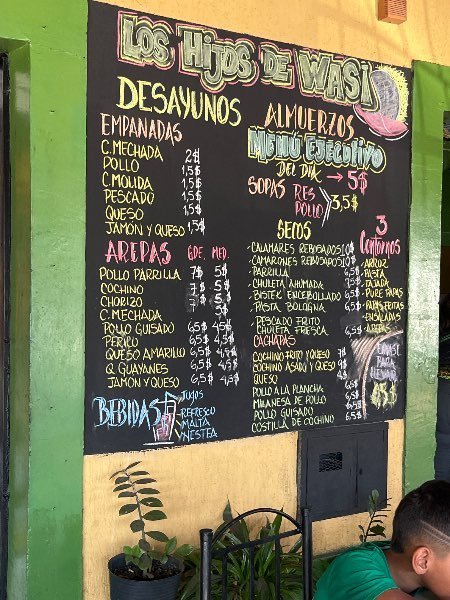 LOS HIJOS DE WASI
DESAYUNOS
EMPANADAS
C. MECHADA 2$
POLLO 1,5$
C. MOLIDA 1,5$
PESCADO 1,5$
QUESO 1,5$
JAMÓN Y QUESO 1,5$
AREPAS GDE. MED.
POLLO PARRILLA 7$ 5$
COCHINO 7$ 5$
CHORIZO 7$ 5$
C. MECHADA 7 5$
POLLO GUISADO 6,5$ 4,5$
PERICO 6,5$ 4,5$
QUESO AMARILLO 6,5$ 4,5$
Q. GUAYANES 6,5$ 4,5$
JAMON Y QUESO 6,5$ 4,5$
BEBIDAS
JUGOS
REFRESCO
MALTA
NISTEA
ALMUERZOS
MENÚ EJECUTIVO
DEL DÍA → 5$
SOPAS RES
POLLO 3,5$
SECOS
- CALAMARES REBOSADOS 10$
- CAMARONES REBOSADOS 10$
- PARRILLA
- CHULETA AHUMADA
- BISTEK ENCEBOLLADO 6,5$
- PASTA BOLOGNA 6,5$
- PESCADO FRITO
CHULETA FRESCA 6,5$
CACHAPAS
COCHINO FRITO Y QUESO 9$
COCHINO ASADO Y QUESO
QUESO
POLLO A LA PLANCHA 6,5$
MILANESA DE POLLO 6,5$
POLLO GUISADO 6,5$
COSTILLA DE COCHINO 6,5$
3
Contornos
- ARROZ
- PASTA
- TAJADA
- PURE PAPAS
- PAPAS FRITAS
- ENSALADAS
- AREPAS
ENVASE
PARA
LLEVAR